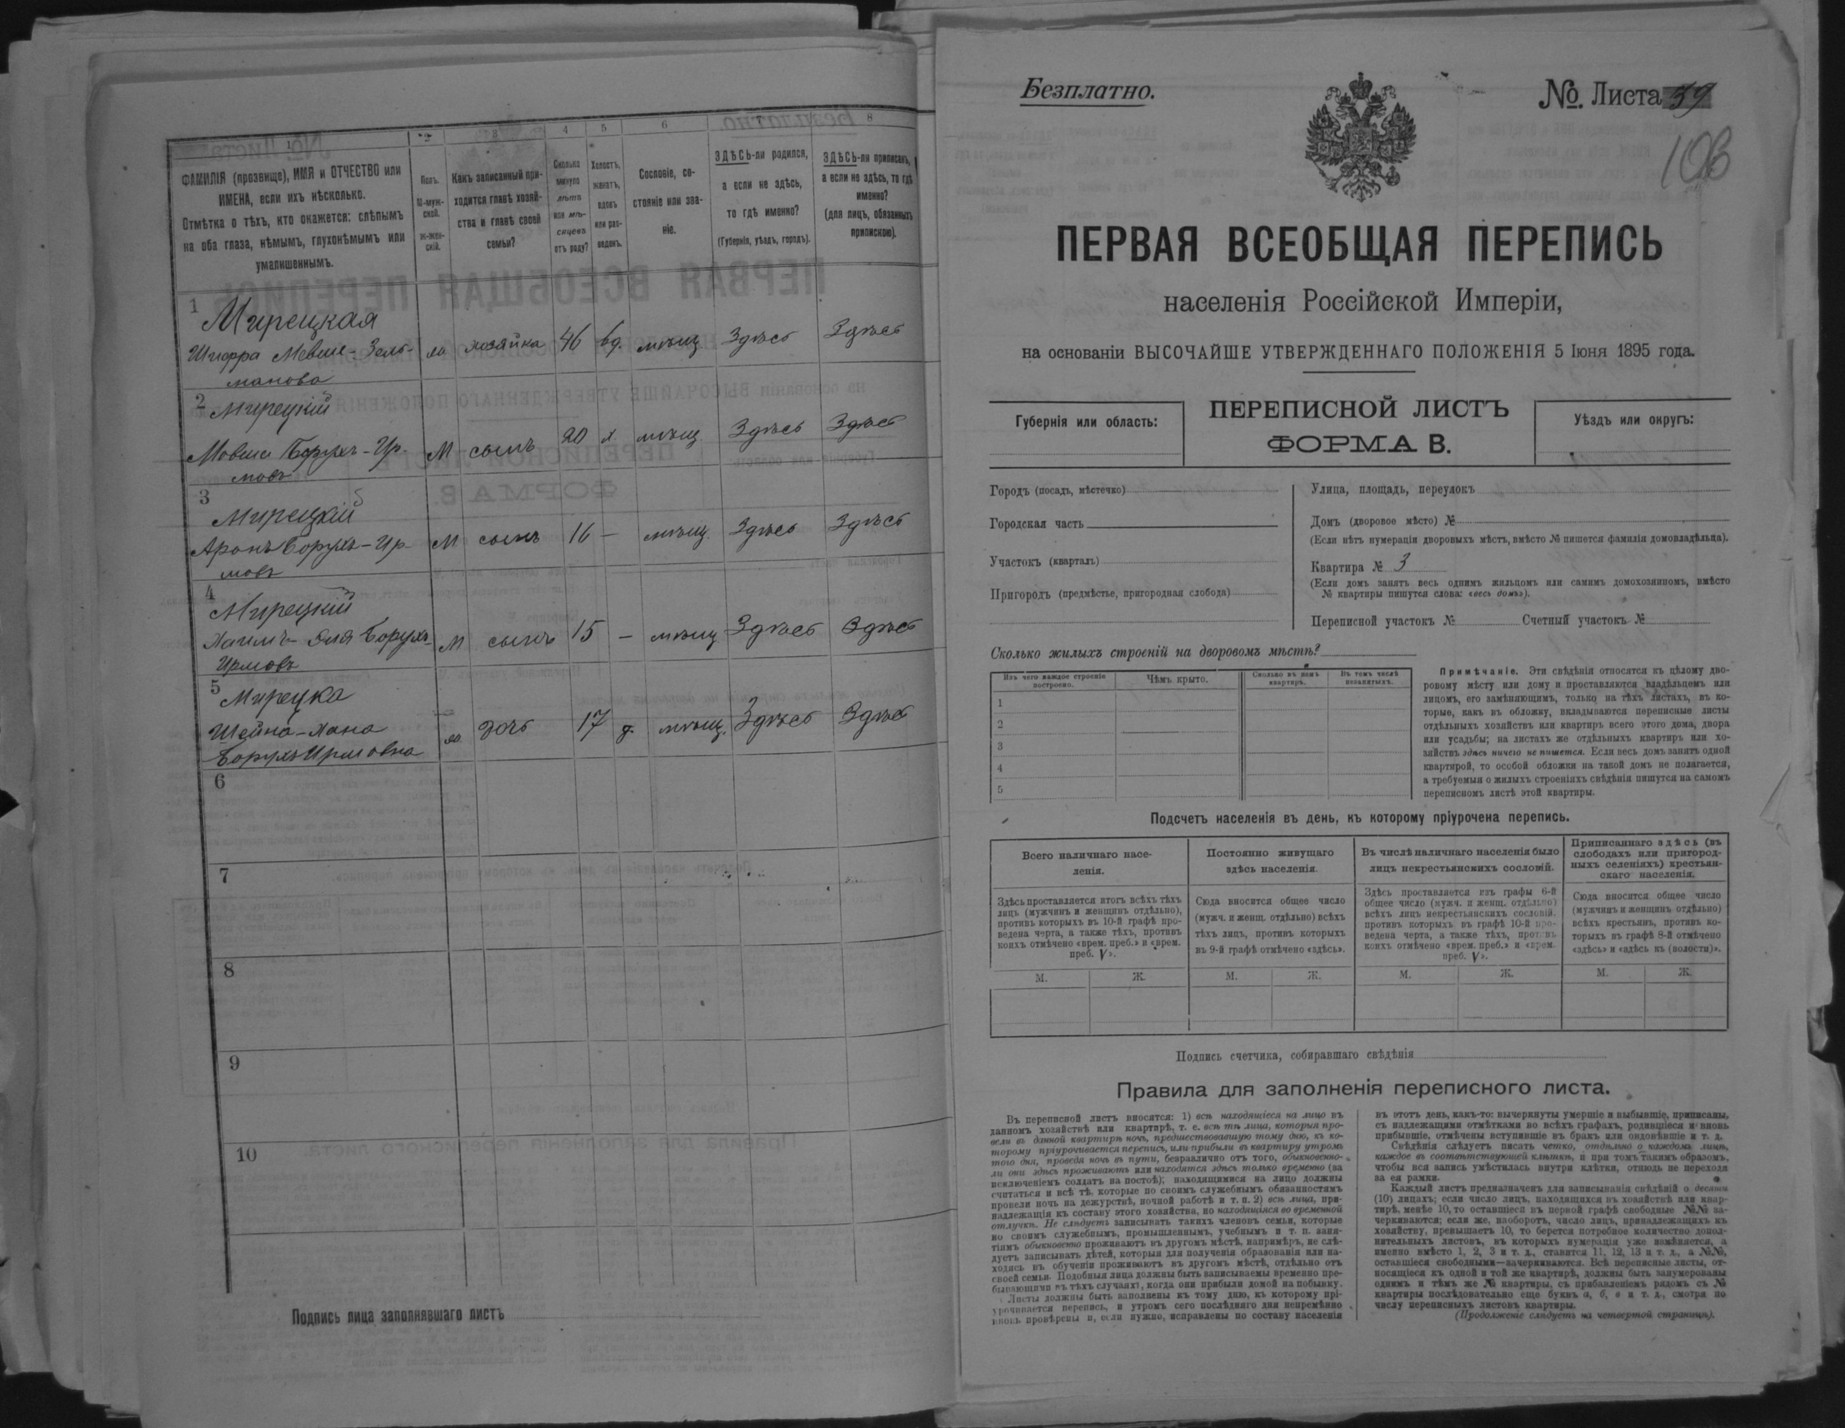 1
2
3
4
5
6
7
8
ФАМИЛІЯ (прозвище), ИМЯ и ОТЧЕСТВО или
ИМЕНА, если ихъ нѣсколько.
Отмѣтка о тѣхъ, кто окажется: слѣпымъ
на оба глаза, нѣмымъ, глухонѣмымъ или
умалишеннымъ.
Полъ.
М-муж-
ской.
Ж-жен-
скій.
Какъ записанный при-
ходится главѣ хозяй-
ства и главѣ своей
семьи?
Сколько
минуло
лѣтъ
или мѣ-
сяцевъ
отъ роду?
Холостъ,
женатъ,
вдовъ
или раз-
веденъ.
Сословіе, со-
стояніе или зва-
ніе.
ЗДѢСЬ-ли родился,
а если не здѣсь,
то гдѣ именно?
(Губернія, уѣздъ, городъ).
ЗДѢСЬ-ли приписанъ,
а если не здѣсь, то гдѣ
именно?
(для лицъ, обязанныхъ
припискою).
1 Мирецкая
Шифра Мовше-Зель-
манова
хозяйка 46 вд. мѣщ Здѣсь Здѣсь
2 Мирецкій
Мовша Борухъ-Ир-
мовъ
М сынъ 20 х. мѣщ. Здѣсь Здѣсь
3 Мирецкій
Аронъ Борухъ-Ир-
мовъ
М сынъ 16 — мѣщ. Здѣсь Здѣсь
4 Мирецкій
Хаимъ- Борухъ-
Ирмовъ
М сынъ 15 — мѣщ Здѣсь Здѣсь
5 Мирецка
Шейна-Хана
Борухъ Ирмовна
дочь 17 д. мѣщ. Здѣсь Здѣсь
6
7
8
9
10
Подпись лица заполнявшаго листъ
Безплатно.
№ Листа 59
ПЕРВАЯ ВСЕОБЩАЯ ПЕРЕПИСЬ
населенія Россійской Имперіи,
на основаніи ВЫСОЧАЙШЕ УТВЕРЖДЕННАГО ПОЛОЖЕНІЯ 5 Іюня 1895 года.
Губернія или область:
ПЕРЕПИСНОЙ ЛИСТЪ
ФОРМА В.
Уѣздъ или округъ:
Городъ (посадъ, мѣстечко)
Городская часть
Участокъ (кварталъ)
Пригородъ (предмѣстье, пригородная слобода)
Улица, площадь, переулокъ
Домъ (дворовое мѣсто) №
(Если нѣтъ нумераціи дворовыхъ мѣстъ, вмѣсто № пишется фамилія домовладѣльца).
Квартира № 3
(Если домъ занятъ весь однимъ жильцомъ или самимъ домохозяиномъ, вмѣсто
№ квартиры пишутся слова: «весь домъ»).
Переписной участокъ № Счетный участокъ №
Сколько жилыхъ строеній на дворовомъ мѣстѣ?
Изъ чего каждое строеніе
построено.
Чѣмъ крыто.
Сколько въ немъ
квартиръ.
Въ томъ числѣ
незанятыхъ.
1
2
3
4
5
Примѣчаніе. Эти свѣдѣнія относятся къ цѣлому дво-
ровому мѣсту или дому и проставляются владѣльцемъ или
лицомъ, его замѣняющимъ, только на тѣхъ листахъ, въ ко-
торые, какъ въ обложку, вкладываются переписные листы
отдѣльныхъ хозяйствъ или квартиръ всего этого дома, двора
или усадьбы; на листахъ же отдѣльныхъ квартиръ или хо-
зяйствъ здѣсь ничего не пишется. Если весь домъ занятъ одной
квартирой, то особой обложки на такой домъ не полагается,
а требуемыя о жилыхъ строеніяхъ свѣдѣнія пишутся на самомъ
переписномъ листѣ этой квартиры.
Подсчетъ населенія въ день, къ которому пріурочена перепись.
Всего наличнаго насе-
ленія.
Здѣсь проставляется итогъ всѣхъ тѣхъ
лицъ (мужчинъ и женщинъ отдѣльно),
противъ которыхъ въ 10-й графѣ про-
ведена черта, а также тѣхъ, противъ
коихъ отмѣчено «врем. преб.» и «врем.
преб. V».
Постоянно живущаго
здѣсь населенія.
Сюда вносится общее число
(мужч. и женщ. отдѣльно) всѣхъ
тѣхъ лицъ, противъ которыхъ
въ 9-й графѣ отмѣчено «здѣсь».
Въ числѣ наличнаго населенія было
лицъ некрестьянскихъ сословій.
Здѣсь проставляется изъ графы 6-й
общее число (мужч. и женщ. отдѣльно)
всѣхъ лицъ некрестьянскихъ сословій,
противъ которыхъ въ графѣ 10-й про-
ведена черта, а также тѣхъ, противъ
коихъ отмѣчено «врем. преб.» и «врем.
преб. V».
Приписаннаго здѣсь (въ
слободахъ или пригород-
ныхъ селеніяхъ) крестьян-
скаго населенія.
Сюда вносится общее число
(мужчинъ и женщинъ отдѣльно)
всѣхъ крестьянъ, противъ ко-
торыхъ въ графѣ 8-й отмѣчено
«здѣсь» и «здѣсь къ (волости)».
М. Ж. М. Ж. М. Ж. М. Ж.
Подпись счетчика, собиравшаго свѣдѣнія
Правила для заполненія переписного листа.
Въ переписной листъ вносятся: 1) всѣ находящіеся на лицо въ
данномъ хозяйствѣ или квартирѣ, т. е. всѣ тѣ лица, которыя про-
вели въ данной квартирѣ ночь, предшествовавшую тому дню, къ ко-
торому пріурочивается перепись, или прибыли въ квартиру утромъ
того дня, проведя ночь въ пути, безразлично отъ того, обыкновенно-
ли они здѣсь проживаютъ или находятся здѣсь только временно (за
исключеніемъ солдатъ на постоѣ); находящимися на лицо должны
считаться и всѣ тѣ, которые по своимъ служебнымъ обязанностямъ
провели ночь на дежурствѣ, ночной работѣ и т. п. 2) всѣ лица, при-
надлежащія къ составу этого хозяйства, но находящіяся во временной
отлучкѣ. Не слѣдуетъ записывать такихъ членовъ семьи, которые
по своимъ служебнымъ, промышленнымъ, учебнымъ и т. п. заня-
тіямъ обыкновенно проживаютъ въ другомъ мѣстѣ, напримѣръ, не слѣ-
дуетъ записывать дѣтей, которыя для полученія образованія или на-
ходясь въ обученіи проживаютъ въ другомъ мѣстѣ, отдѣльно отъ
своей семьи. Подобныя лица должны быть записываемы временно пре-
бывающими въ тѣхъ случаяхъ, когда они прибыли домой на побывку.
Листы должны быть заполнены къ тому дню, къ которому прі-
урочивается перепись, и утромъ сего послѣдняго дня непремѣнно
вновь провѣрены и, если нужно, исправлены по составу населенія
въ этотъ день, какъ-то: вычеркнуты умершіе и выбывшіе, приписаны,
съ надлежащими отмѣтками во всѣхъ графахъ, родившіеся и вновь
прибывшіе, отмѣчены вступившіе въ бракъ или овдовѣвшіе и т. д.
Свѣдѣнія слѣдуетъ писать четко, отдѣльно о каждомъ лицѣ,
каждое въ соотвѣтствующей клѣткѣ, и при томъ такимъ образомъ,
чтобы вся запись умѣстилась внутри клѣтки, отнюдь не переходя
за ея рамки.
Каждый листъ предназначенъ для записыванія свѣдѣній о десяти
(10) лицахъ; если число лицъ, находящихся въ хозяйствѣ или квар-
тирѣ, менѣе 10, то оставшіеся въ первой графѣ свободные №№ за-
черкиваются; если же, наоборотъ, число лицъ, принадлежащихъ къ
хозяйству, превышаетъ 10, то берется потребное количество допол-
нительныхъ листовъ, въ которыхъ нумерація уже измѣняется, а
именно вмѣсто 1, 2, 3 и т. д., ставится 11, 12, 13 и т. д., а №№,
оставшіеся свободными—зачеркиваются. Всѣ переписные листы, от-
носящіеся къ одной и той же квартирѣ, должны быть занумерованы
однимъ и тѣмъ же № квартиры, съ прибавленіемъ рядомъ съ №
квартиры послѣдовательно еще буквъ а, б, в и т. д., смотря по
числу переписныхъ листовъ квартиры.
(Продолженіе слѣдуетъ на четвертой страницѣ).